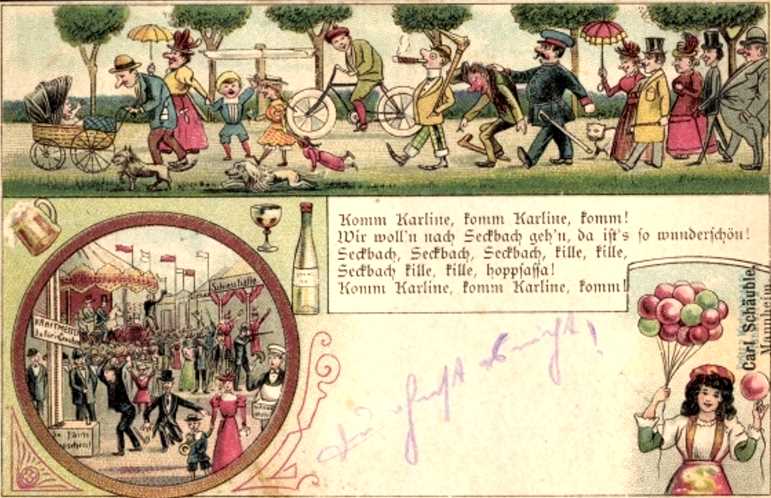 Komm Karline, komm Karline, komm!
Wir woll'n nach Seckbach geh'n, da ist's so wunderschön!
Seckbach, Seckbach, Seckbach, kille, kille,
Seckbach kille, kille, hoppsassa!
Komm Karline, komm Karline, komm!
Schiesshalle
Carl Schäuble,
Mannheim